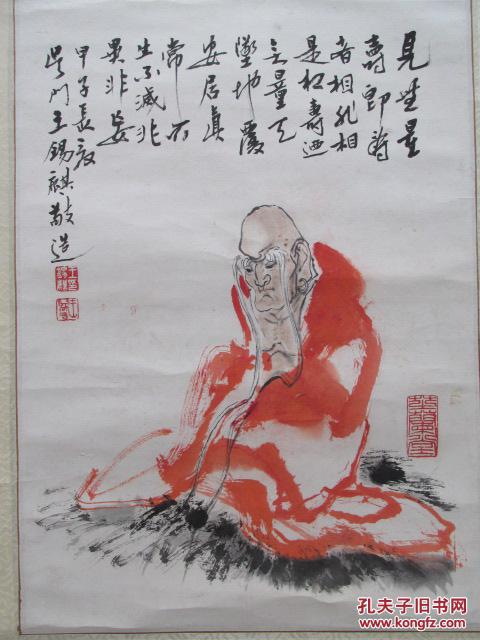 見無量
壽即壽
者相非相
是相壽迺
無量天
墜地覆
安居真
常不
生不滅非
異非妄
甲子長夏
吴門王錫麒敬造
孔夫子旧书网
www.kongfz.com